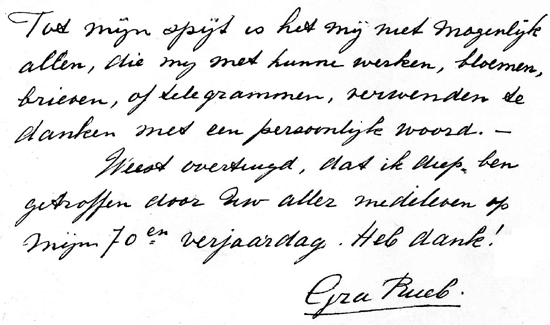 Tot mijn spijt is het mij niet mogenlijk
allen, die mij met hunne werken, bloemen,
brieven, of telegrammen, verwenden te
danken met een persoonlijk woord. –
Weest overtuigd, dat ik diep ben
getroffen door Uw aller medeleven op
mijn 70en verjaardag. Heb dank!
Gra Rueb.